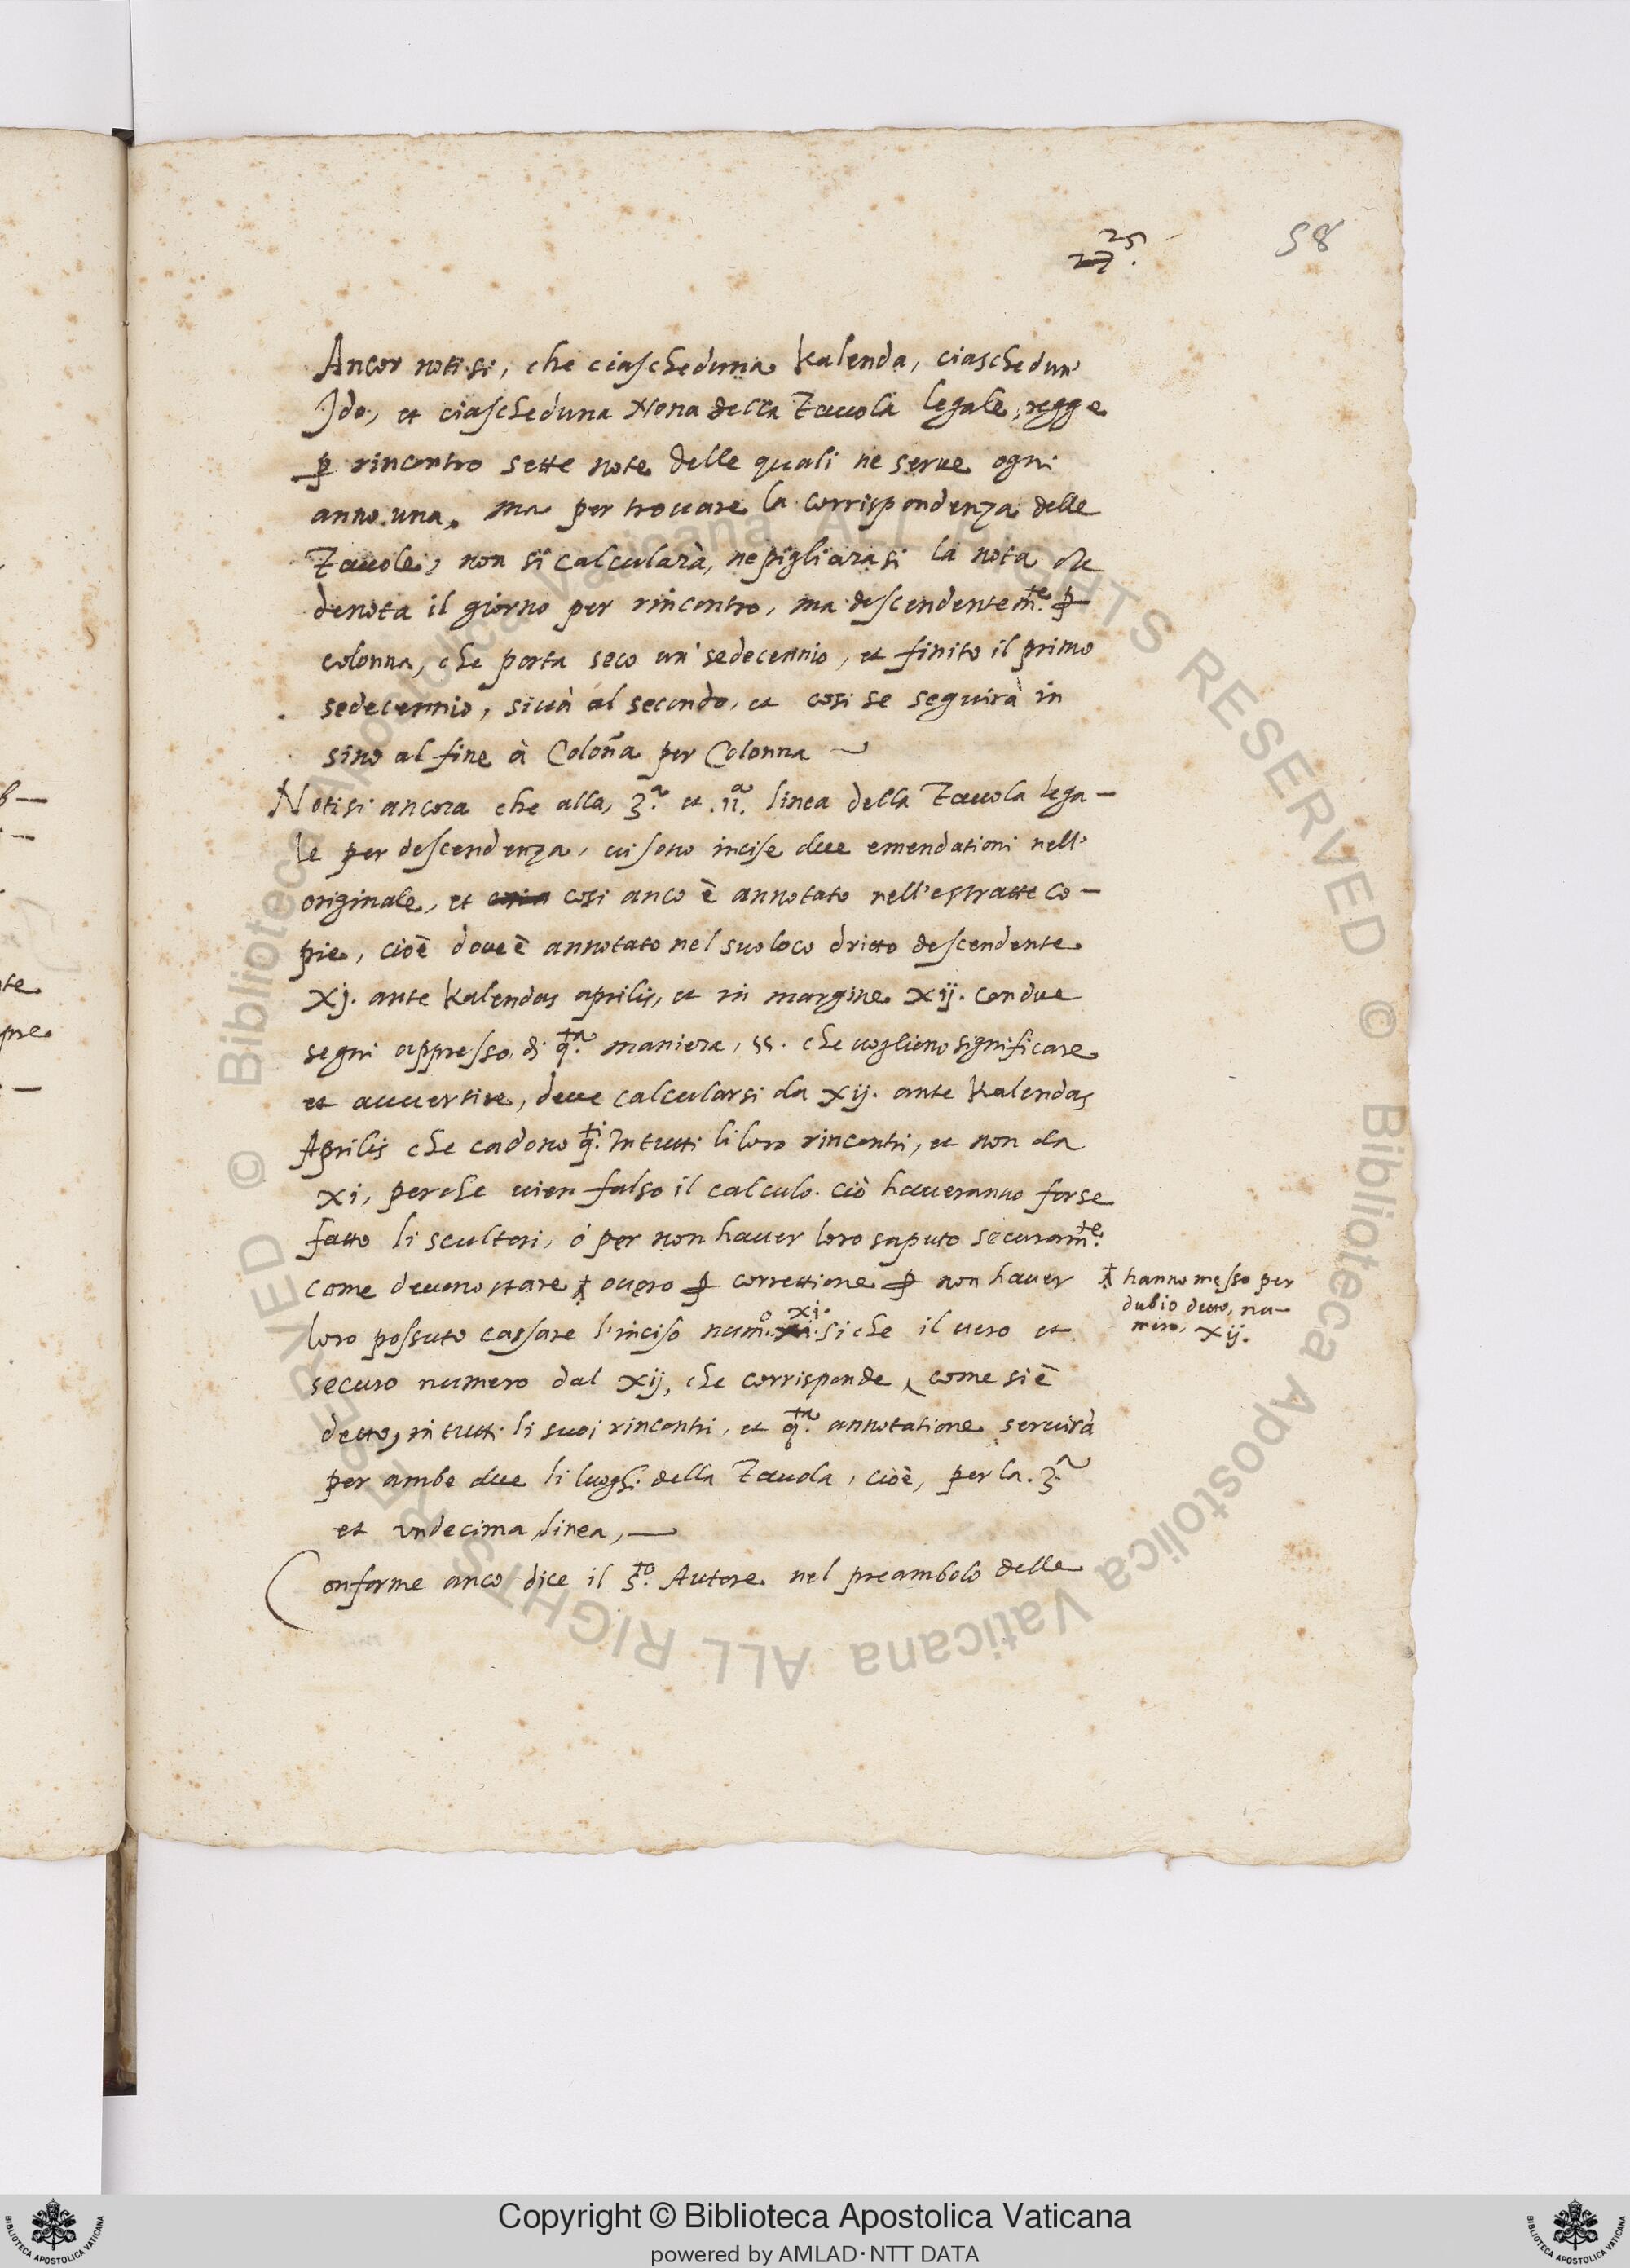 25
27.
58
Ancor notisi, che ciascheduna Kalenda, ciaschedun'
Ido, et ciascheduna Nona della Tauola legale, regge
ꝑ rincontro sette note delle quali ne serue ogni
anno una. ma per trouare la corrispondenza delle
Tauole, non si calcularà, ne pigliarasi la nota che
denota il giorno per rincontro, ma descendentem.te ꝑ
colonna, che porta seco un' sedecennio, et finito il primo
sedecennio, siuà al secondo, et cosi se seguirà in
sino al fine à Coloña per Colonna
Notisi ancora che alla, 3.a et .11.a linea della Tauola lega-
le per descendenza, ui sono incise due emendationi nell'
originale, et cosi anco è annotato nell'estratte co-
pie, cioè doue è annotato nel suo loco dritto descendente
xj. ante Kalendas aprilis, et in margine xij. con due
segni appresso, di q.ta maniera, ss. che uoglieno significare
et auuertire, deue calcularsi da xij. ante Kalendas
Aprilis che cadono q.ti In tutti li loro rincontri, et non da
xi, perche uien falso il calculo. ciò haueranno forse
fatto li scultori, ó per non hauer loro saputo securam.te
come deueno stare ⁑ ouero ꝑ correttione ꝑ non hauer
loro possuto cassare l'inciso num.o xi. si che il uero et
⁑ hanno messo per
dubio detto, nu-
mero, xij.
securo numero dal xij, che corrisponde, come si è
detto, in tutti li suoi rincontri, et q.ta annotatione seruirà
per ambe due li luoghi della Tauola, cioè, per la .3.a
et undecima linea,
Conforme anco dice il s.to Autore nel preambolo delle
© Biblioteca Apostolica Vaticana ALL RIGHTS RESERVED © Biblioteca Apostolica Vaticana ALL RIGHTS RESERVED
Copyright © Biblioteca Apostolica Vaticana
powered by AMLAD·NTT DATA